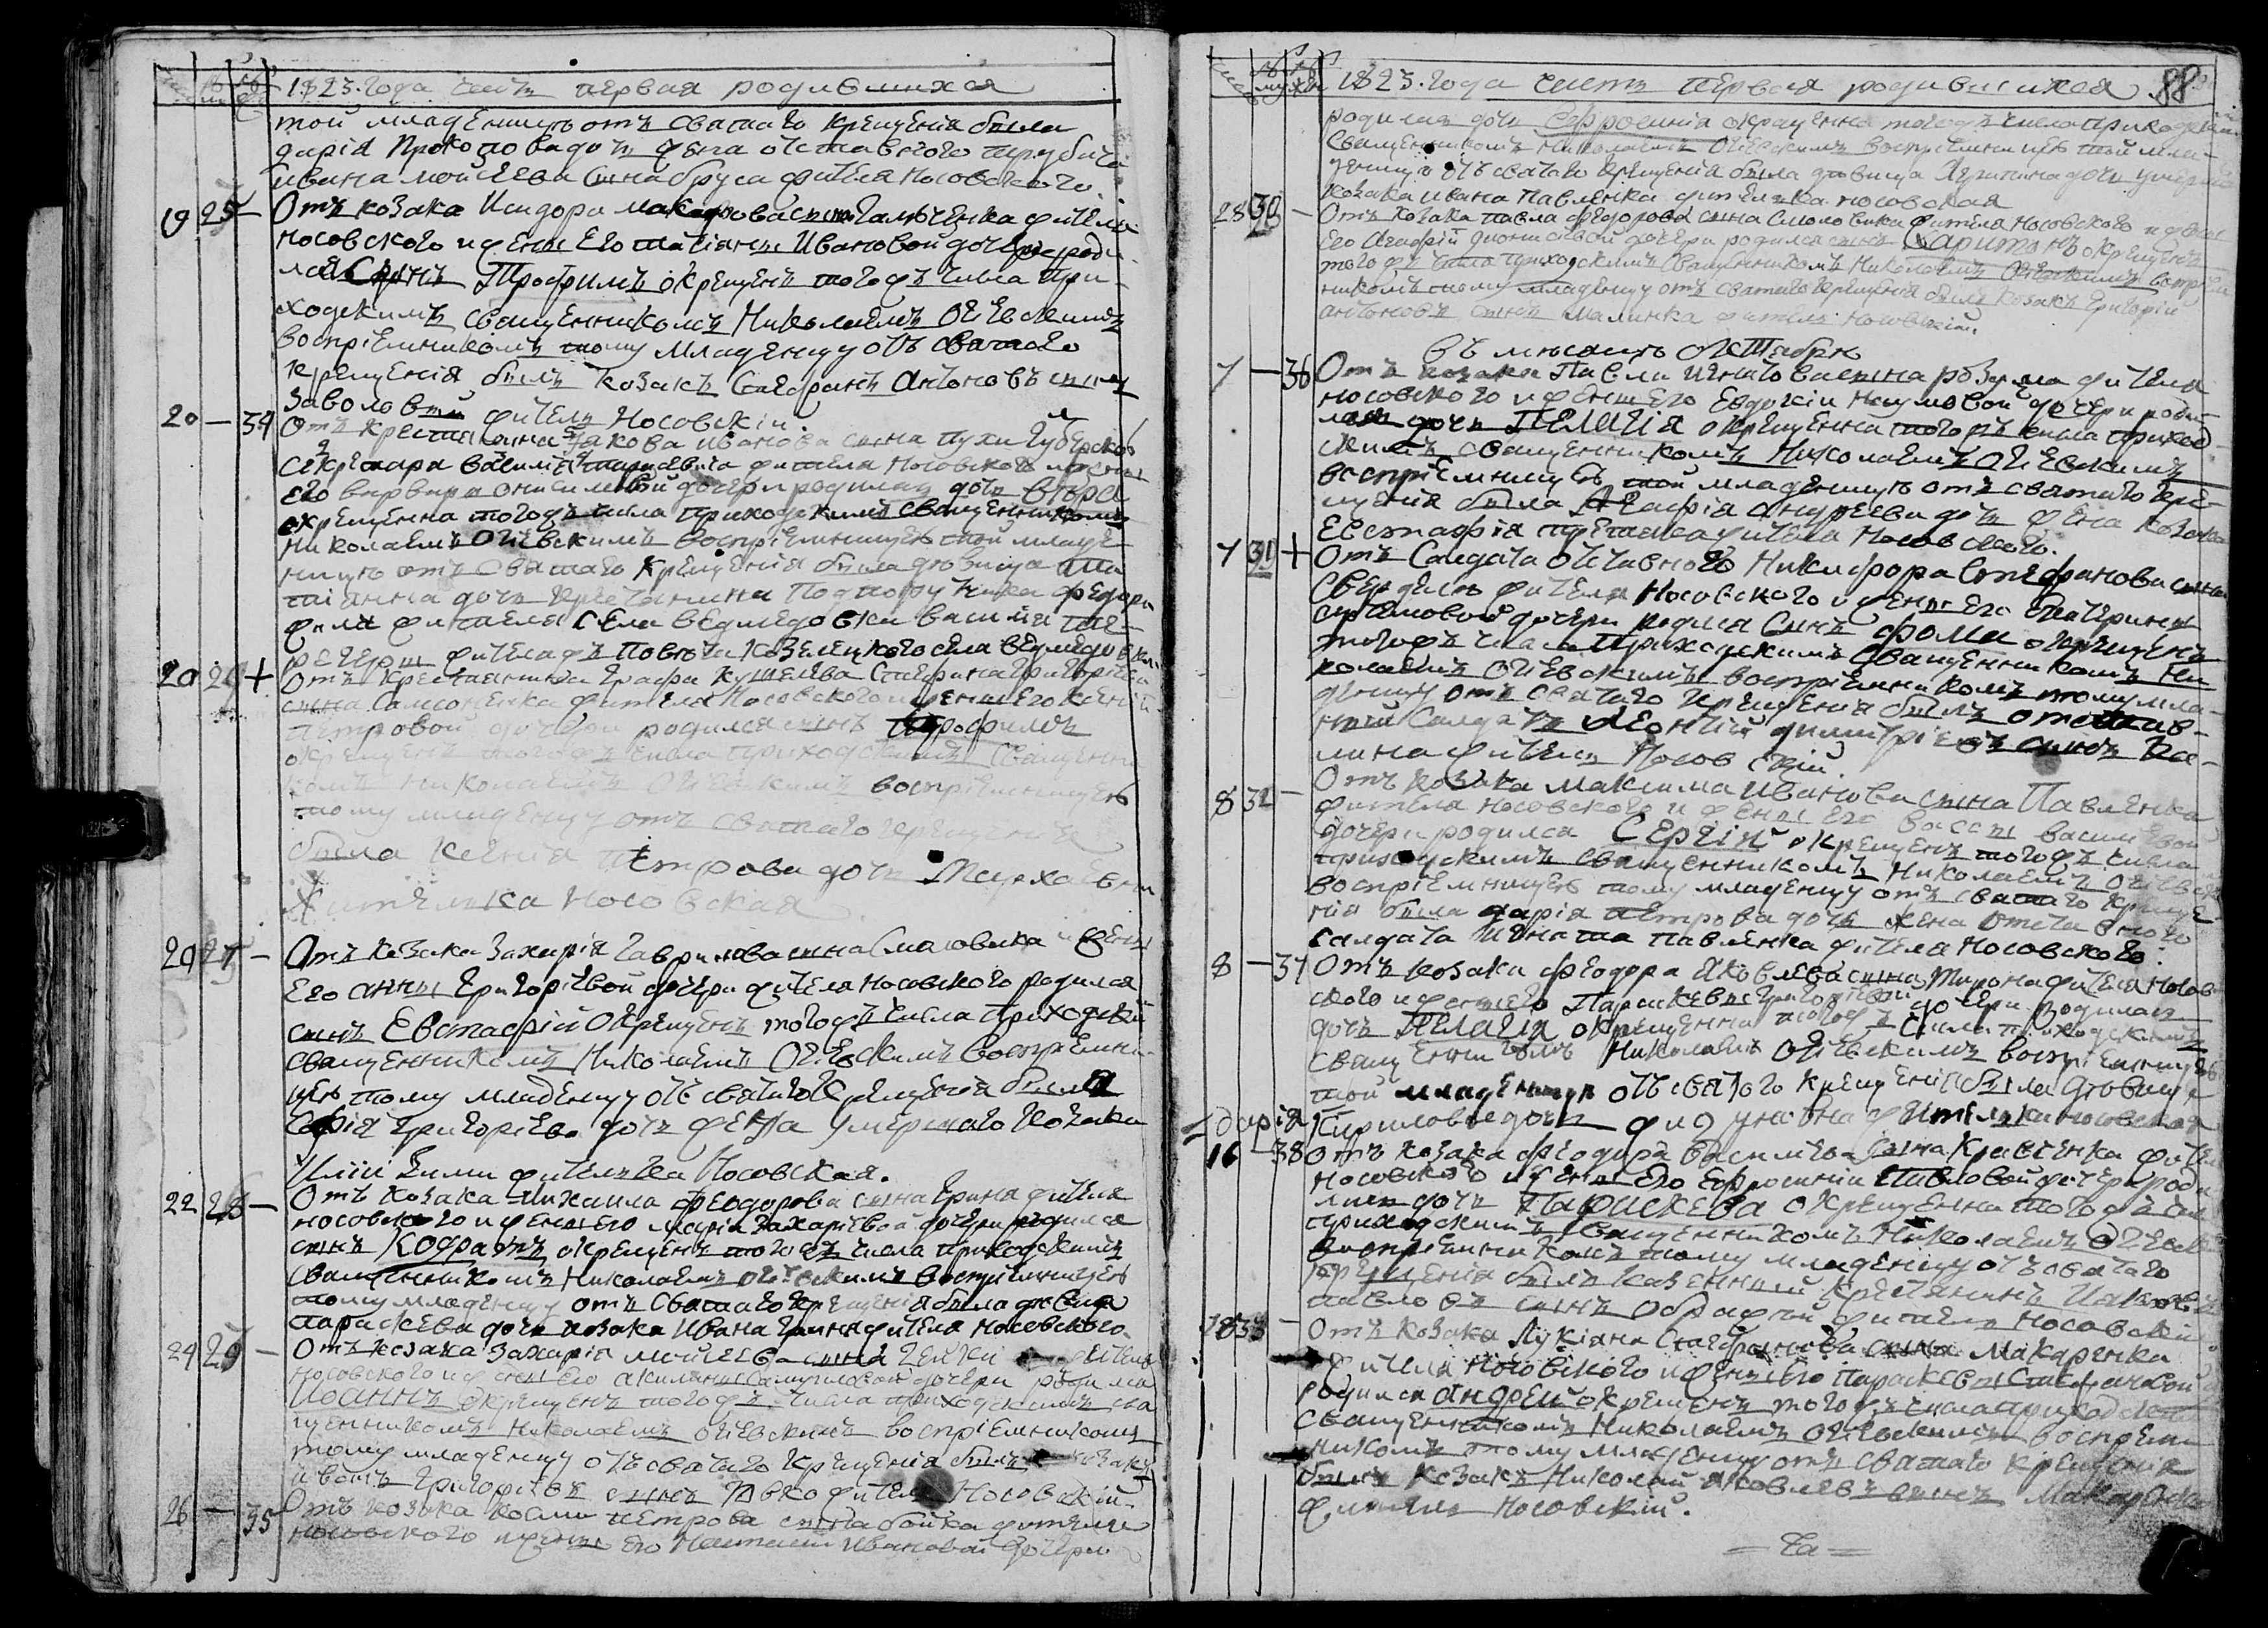 1823. Года часть первая родившихся
той младеницы отъ святаго крещенія была
дарія Прокопова дочь жена отставного трубача
ивана мойсеева сына бруса жителя Носовского.
19 25 — Отъ козака Исидора макарова сына жителя
Носовского и жены Его татіаны Ивановой дочери роди-
лся Сынъ Трофимъ окрещенъ тогожъ числа При-
ходскимъ священникомъ Николаемъ Огіевскимъ
воспріемникомъ тому младенцу отъ святаго
крещенія былъ козакъ Стефанъ Антоновъ сынъ
Заволовый житель Носовскій.
20 — 34 Отъ крестянина Якова иванова сына пухи Губерского
секретара василія жителя Носовского и жены
его варвары дочери родилась дочь вѣра
окрещенна тогожъ числа приходскимъ священникомъ
николаемъ Огіевскимъ воспріемницею той младе
ницы отъ святаго крещенія была дѣвица та
тіанна дочь крестянина
жителя села ведмедовки василія
жителя жъ Повѣта козелецкого села ведмедовки
20 26 + Отъ крестянина Графа кушелева Стефана Григоріева
сына Самсоненка жителя Носовского и жены Его ксеніи
петровой дочери родился сынъ Трофимъ
окрещенъ тогожъ числа приходскимъ священни
комъ николаемъ Огіевскимъ воспріемницею
тому младенцу отъ святаго крещенія
была ксенія петрова дочь
жителька носовская
20 27 — Отъ козака Захарія Гаврилова сына Смаловика и жены
Его анны Григоріевой дочери жителя носовского родился
сынъ Евстафій окрещенъ тогожъ числа приходскій
священникомъ Николаемъ Огіевскимъ воспріемни-
цею тому младенцу отъ святаго крещенія была
Софія Григоріева дочь жена умершаго козака
Иліи Зими жителька Носовская.
22 28 — Отъ козака михаила феодорова сына Грина жителя
носовского и жены его маріи Захаріевой дочери родился
сынъ Кодратъ окрещенъ тогожъ числа приходскимъ
священникомъ Николаемъ огіевскимъ воспріемницею
тому младенцу отъ святаго крещенія была дѣвица
параскева дочь козака Ивана Грина жителя носовского.
24 29 — Отъ козака Захарія мойсеева сына жителя
носовского и жены его акилины Самуиловой дочери родился
Иоаннъ окрещенъ тогожъ числа приходскимъ свя
щенникомъ николаемъ огіевскимъ воспріемникомъ
тому младенцу отъ святаго крещенія былъ козакъ
иванъ Григоріевъ сынъ житель Носовскій.
26 — 35 Отъ козака косми петрова сына бойка жителя
носовского и жены его Ивановой дочери
1823. Года часть первая родившихся 88
родилась дочь Ефросинія окрещенна тогожъ числа приходскимъ
священникомъ николаемъ огіевскимъ воспріемницею той мла-
деницы отъ святаго крещенія была дѣвица дочь умершаго
козака ивана павленка жителька носовская
28 30 — Отъ козака павла федорова сына Смоловика жителя Носовского и жены
Его Агафіи діонисіевой дочери родился сынъ Харитонъ окрещенъ
тогожъ числа приходскимъ священникомъ Николаемъ Огіевскимъ воспріем
никомъ тому младенцу отъ святаго крещенія былъ козакъ Григорій
антоновъ сынъ Малинка житель Носовскій.
въ мѣсяцѣ Октябрѣ
7 — 36 Отъ козака Павла Игнатова сына розума жителя
носовского и жены его Евдокіи Наумовой дочери роди-
лась дочь ПЕЛАГІЯ окрещенна тогожъ числа приход
скимъ священникомъ Николаемъ огіевскимъ
воспріемницею той младеницы отъ святаго кре-
щенія была Агафія андреева дочь жена козака
Евстафія жителя Носовского.
7 31 + Отъ Салдата отставного Никифора Стефанова сына
Свердела жителя Носовского и жены Его Екатерины
дочери родился Сынъ Фома окрещенъ
тогожъ числа приходскимъ священникомъ Ни
колаемъ огіевскимъ воспріемникомъ тому мла-
денцу отъ святаго крещенія былъ отстав-
ный Салдатъ Леонтій димитріевъ сынъ Ка-
лина житель Носовскій.
8 32 — Отъ козака максима Иванова сына Павленка
жителя носовского и жены его вассы василіевой
дочери родился СЕРГІЙ окрещенъ тогожъ числа
приходскимъ священникомъ Николаемъ огіевск
воспріемницею тому младенцу отъ святаго креще
нія была дарія петрова дочь жена отставного
салдата Игната павленка жителя носовского:
8 — 37 Отъ козака феодора Яковлева сына Мирона жителя носов
ского и жены его Параскевы Григоріевой дочери родилась
дочь ПЕЛАГІЯ окрещенна тогожъ числа приходскимъ
священникомъ Николаемъ огіевскимъ воспріемницею
той младеницы отъ святого крещенія была дѣвица
дарія Кирилова дочь жителька носовская
16 — 38 отъ козака феодора василіева сына Кравченка жителя
носовского и жены Его Ефросиніи Павловой дочери роди
лась дочь ПАРАСКЕВА окрещенна тогожъ числа
приходскимъ священникомъ Николаемъ Огіевск
воспріемникомъ тому младенцу отъ святаго
крещенія былъ казенный Крестянинъ Иаковъ
павловъ сынъ житель носовскій
18 33 — Отъ козака Лукіана Стефанова сына Макаренка
жителя носовского и жены Его параскевы дочери
родился андрей окрещенъ тогожъ числа приходскимъ
священникомъ Николаемъ огіевскимъ воспріем
никомъ тому младенцу отъ святаго крещенія
былъ козакъ Николай яковлевъ сынъ Макаренко
житель носовскій.